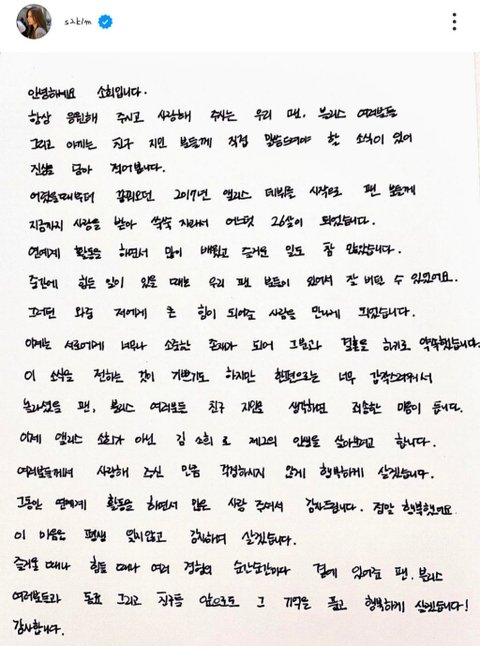 s2k1m
안녕하세요 소희입니다.
항상 응원해 주시고 사랑해 주시는 우리 팬, 블리스 여러분들
그리고 아끼는 친구 지인 분들께 직접 말씀드려야 할 소식이 있어
진심을 담아 적어봅니다.
어렸을때부터 꿈꿔오던 2017년 앨리스 데뷔를 시작으로 팬 분들께
지금까지 사랑을 받아 쑥쑥 자라서 어느덧 26살이 되었습니다.
연예계 활동을 하면서 많이 배웠고 즐거운 일도 참 많았습니다.
중간에 힘든 일이 있을 때는 우리 팬 분들이 있어서 잘 버틸 수 있었어요.
그러던 와중 저에게 큰 힘이 되어준 사람을 만나게 되었습니다.
이제는 서로에게 너무나 소중한 존재가 되어 그분과 결혼을 하기로 약속했습니다.
이 소식을 전하는 것이 기쁘기도 하지만 한편으로는 너무 갑작스러워서
놀라셨을 팬, 블리스 여러분들 친구 지인을 생각하면 죄송한 마음이 듭니다.
이제 앨리스 소희가 아닌 김소희로 제2의 인생을 살아보려고 합니다.
여러분들께서 사랑해 주신 만큼 걱정하시지 않게 행복하게 살겠습니다.
그동안 연예계 활동을 하면서 많은 사랑 주셔서 감사드립니다. 정말 행복했어요
이 마음은 평생 잊지않고 감사하며 살겠습니다.
즐거울 때나 힘들 때나 여러 경험의 순간순간마다 곁에 있어준 팬, 블리스
여러분들과 동료 그리고 친구들 앞으로도 그 기억을 품고 행복하게 살겠습니다!
감사합니다.